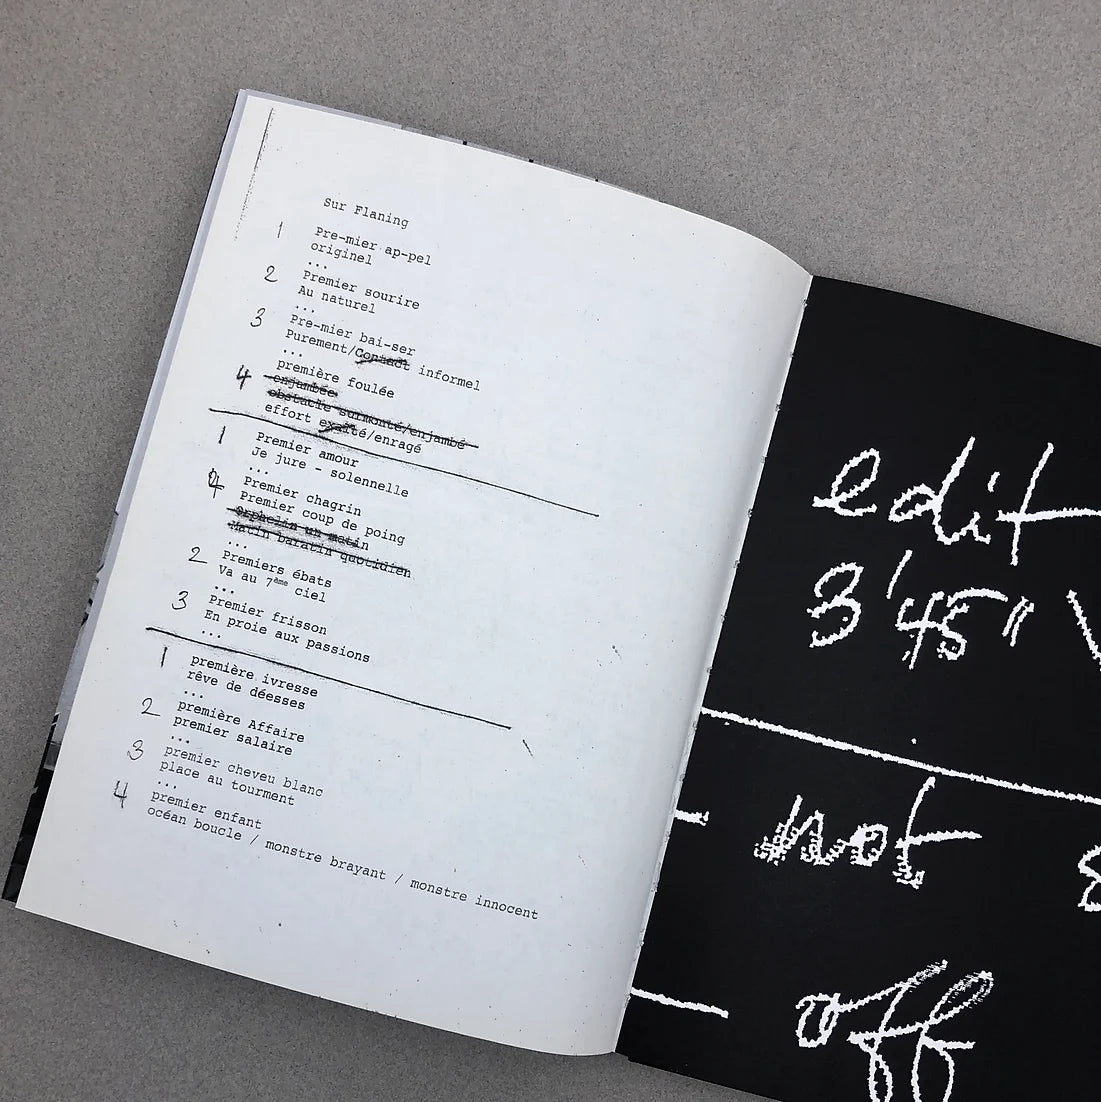 Sur Flaning
1 Pre-mier ap-pel
originel
...
2 Premier sourire
Au naturel
...
3 Pre-mier bai-ser
Purement/Contact informel
...
4 première foulée
enjambée
obstacle surmonté/enjambé
effort exalté/enragé
1 Premier amour
Je jure - solennelle
...
4 Premier chagrin
Premier coup de poing
Orphelin un matin
Matin baratin quotidien
...
2 Premiers ébats
Va au 7ème ciel
...
3 Premier frisson
En proie aux passions
...
1 première ivresse
rêve de déesses
...
2 première Affaire
premier salaire
...
3 premier cheveu blanc
place au tourment
...
4 premier enfant
océan boucle / monstre brayant / monstre innocent
edit
3'45"
not
off